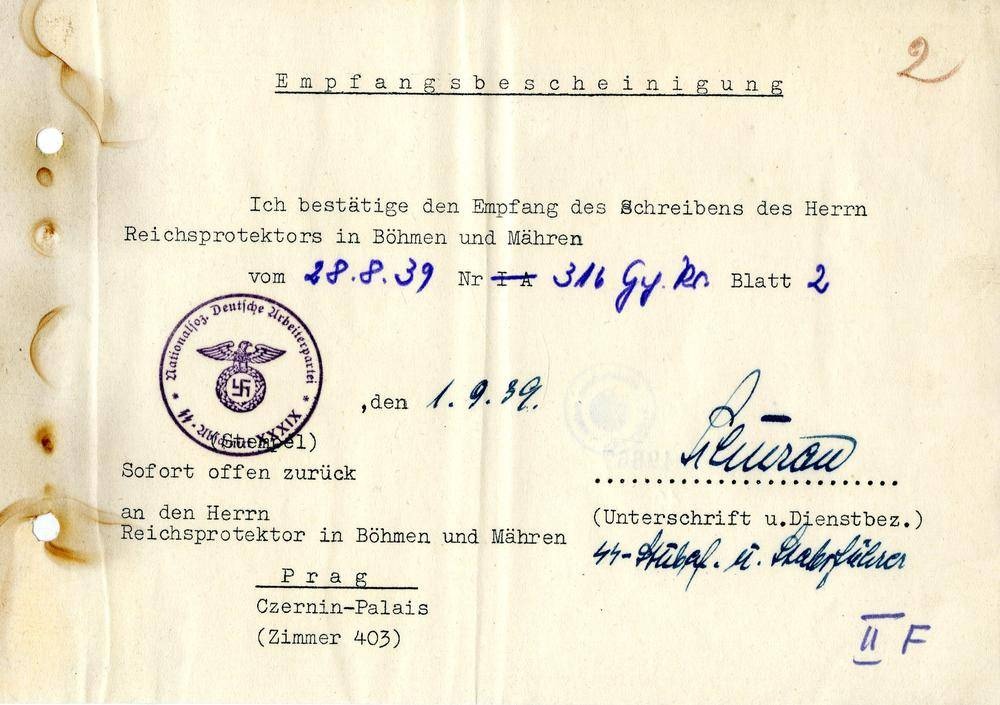 2
Empfangsbescheinigung
Ich bestätige den Empfang des Schreibens des Herrn
Reichsprotektors in Böhmen und Mähren
vom 28.8.39 Nr I A 316 Blatt 2
Nationalsoz. Deutsche Arbeiterpartei
* SS-Abschnitt XXXIX *
,den 1.9.39.
(Stempel)
Sofort offen zurück
an den Herrn
Reichsprotektor in Böhmen und Mähren
Prag
Czernin-Palais
(Zimmer 403)
(Unterschrift u.Dienstbez.)
SS-Stubaf. u. Stabsführer
II F